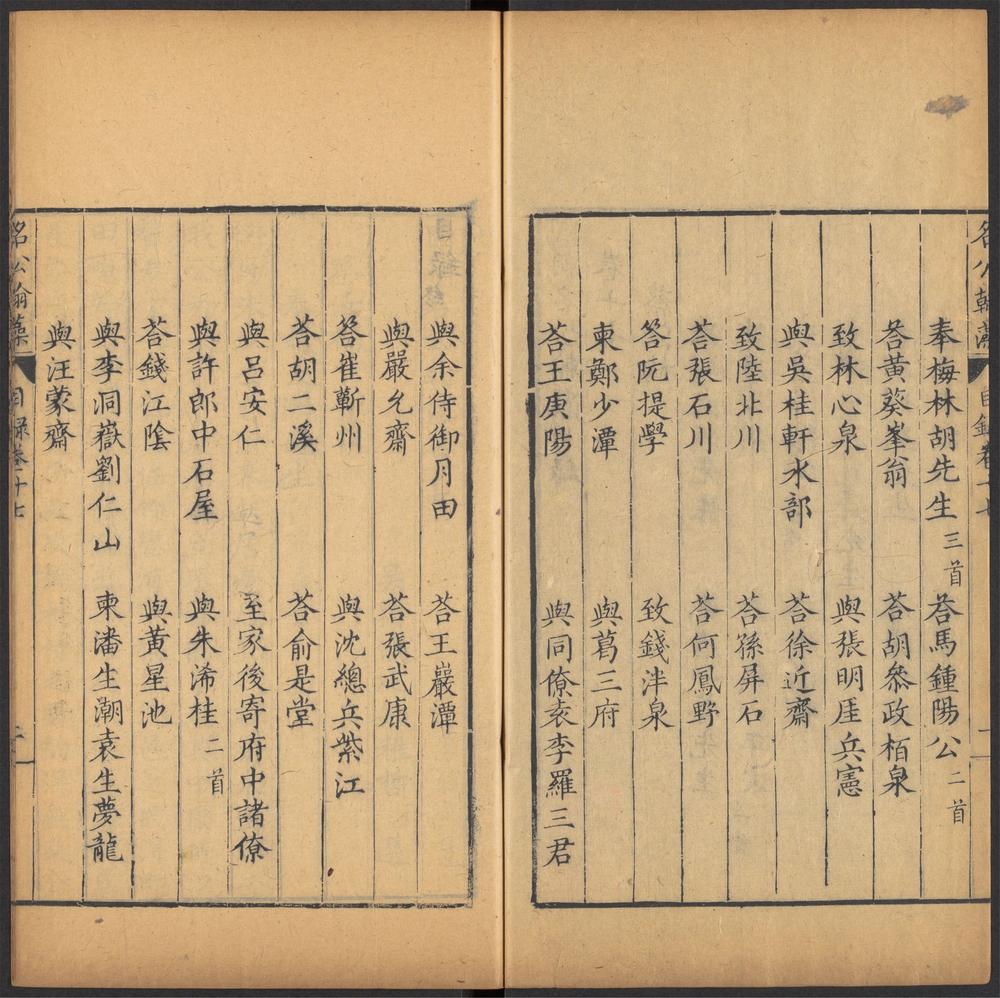 名公翰藻 目錄卷十七
奉梅林胡先生三首 荅馬鍾陽公二首
荅黃葵峯翁 荅胡叅政栢泉
致林心泉 與張明厓兵憲
與吳桂軒水部 荅徐近齋
致陸北川 荅孫屏石
荅張石川 荅何鳳野
答阮提學 致錢泮泉
柬鄭少潭 與葛三府
荅王庚陽 與同僚袁李羅三君
與余侍御月田 荅王巖潭
與嚴允齋 荅張武康
答崔蘄州 與沈總兵紫江
荅胡二溪 荅俞是堂
與呂安仁 至家後寄府中諸僚
與許郎中石屋 與朱浠桂二首
荅錢江陰 與黃星池
與李洞嶽劉仁山 柬潘生潮袁生夢龍
與汪蒙齋
名公翰藻 目錄卷十七